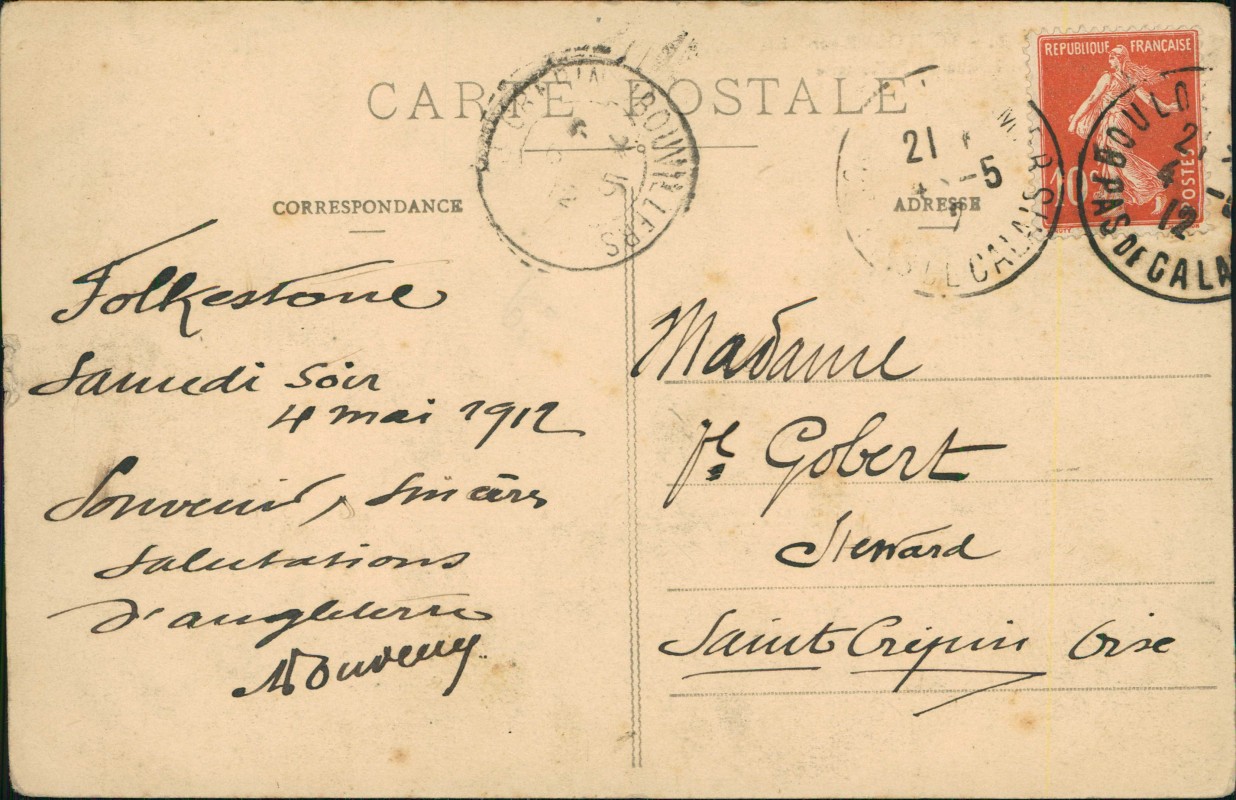 CARTE POSTALE
CORRESPONDANCE
ADRESSE
REPUBLIQUE FRANÇAISE
10c
POSTES
21
4 -5
CALAIS
BOULO
21
4 -5
12
PAS DE CALA
IBOUVILLERS
Folkestone
Samedi soir
4 mai 1912
Souvenir, sincères
salutations
d'angleterre
Madame
Gobert
Steward
Saint Crépin Oise